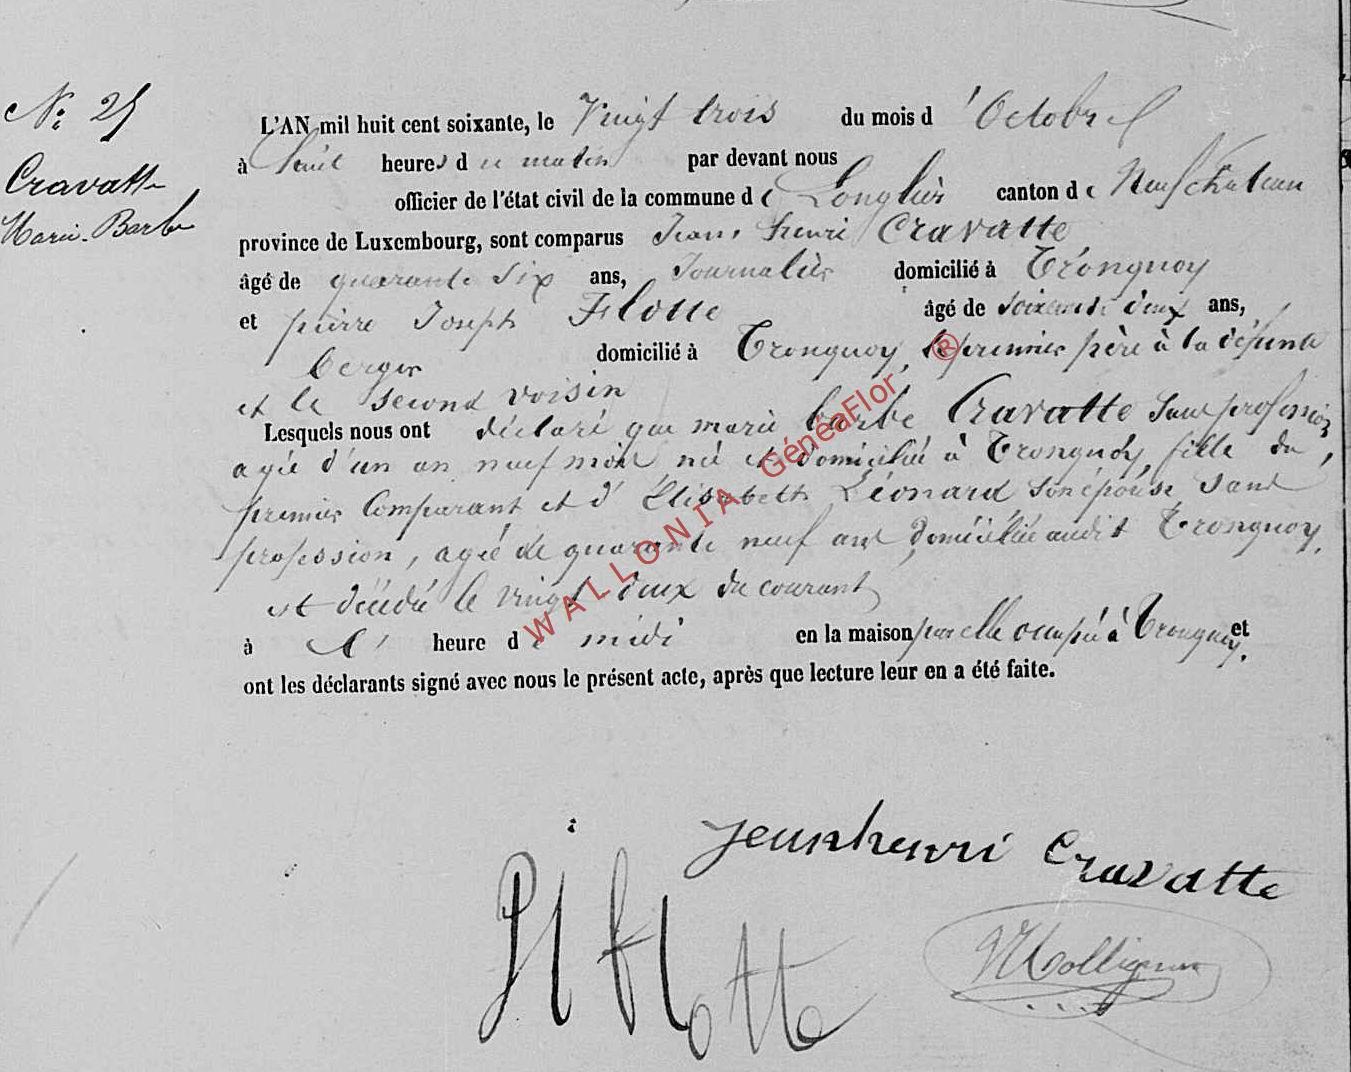 N: 25
Cravatte
Marie-Barbe
L'AN mil huit cent soixante, le Vingt trois du mois d'Octobre
à huit heures du matin par devant nous
officier de l'état civil de la commune de Longlier canton de Neufchateau
province de Luxembourg, sont comparus Jean henri Cravatte
âgé de quarante six ans, Journalier domicilié à Tronquoy
et pierre Joseph Flotte âgé de soixante deux ans,
berger domicilié à Tronquoy, le premier père à la défunte
et le second voisin
Lesquels nous ont déclaré que marie barbe Cravatte Sans profession,
agée d'un an neuf mois né et domiciliée à Tronquoy, fille du
premier Comparant et d'Elisabeth Léonard son épouse, sans
profession, agée de quarante neuf ans, domiciliée audit Tronquoy,
est décédée le vingt deux du courant
à l' heure de midi en la maison par elle occupée à Tronquoy. et
ont les déclarants signé avec nous le présent acte, après que lecture leur en a été faite.
jeanhenri Cravatte
PJ flotte
Collignon
WALLONIA GénéaFlor ®